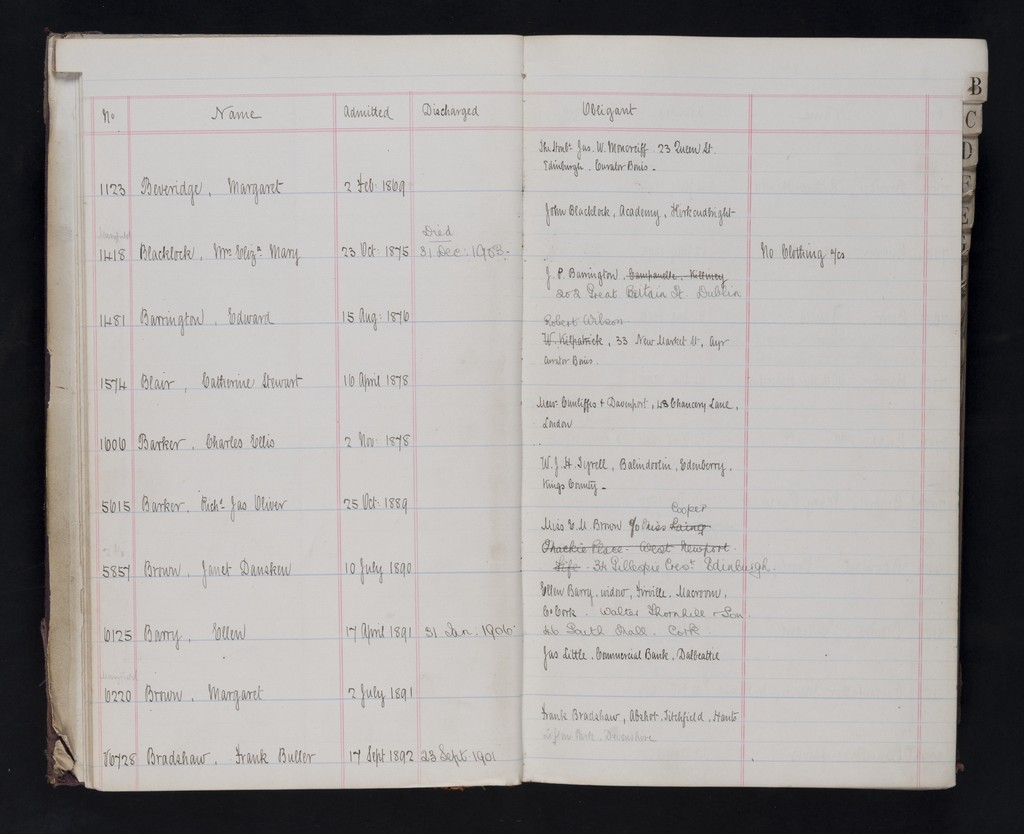 B
No Name Admitted Discharged Obligant
C
D
F
E
The Honble Jas. W. Moncreiff 23 Queen St
Edinburgh. Curator Bonis.
1123 Beveridge, Margaret 2 Feb: 1869
John Blacklock, Academy, Kirkcudbright
Died
1418 Blacklock, Mrs Elizа Mary 23 Oct: 1875 31 Dec: 1908. No Clothing a/cs
J. P. Barrington, Campanelle, Killiney
202 Great Britain St. Dublin
1481 Barrington, Edward 15 Aug: 1876
Robert Wilson
W. Kilpatrick, 33 New Market St, Ayr
Curator Bonis.
1574 Blair, Catherine Stewart 16 April 1878
Messrs Cunliffes & Davenport, 43 Chancery Lane,
London
1606 Barker, Charles Ellis 2 Nov: 1878
W. J. H. Tyrell, Balindoolin, Edenberry,
Kings County.
5615 Barker, Richd Jas Oliver 25 Oct: 1889
Cooper
Miss E. M. Brown c/o Miss Laing
Thackie Place. West Newport.
Fife. 34 Gillespie Cresт Edinburgh.
5857 Brown, Janet Dansken 10 July 1890
Ellen Barry, widow, Firville, Macroom,
Co Cork. Walter Thornhill & Son
6125 Barry, Ellen 17 April 1891 31 Jan. 1906 46 South Mall. Cork.
Jas Little, Commercial Bank, Dalbeattie
6220 Brown, Margaret 2 July 1891
Frank Bradshaw, Abshot, Titchfield, Hants
Lifton Park, Devonshire
6728 Bradshaw, Frank Buller 17 Sept 1892 23 Sept 1901